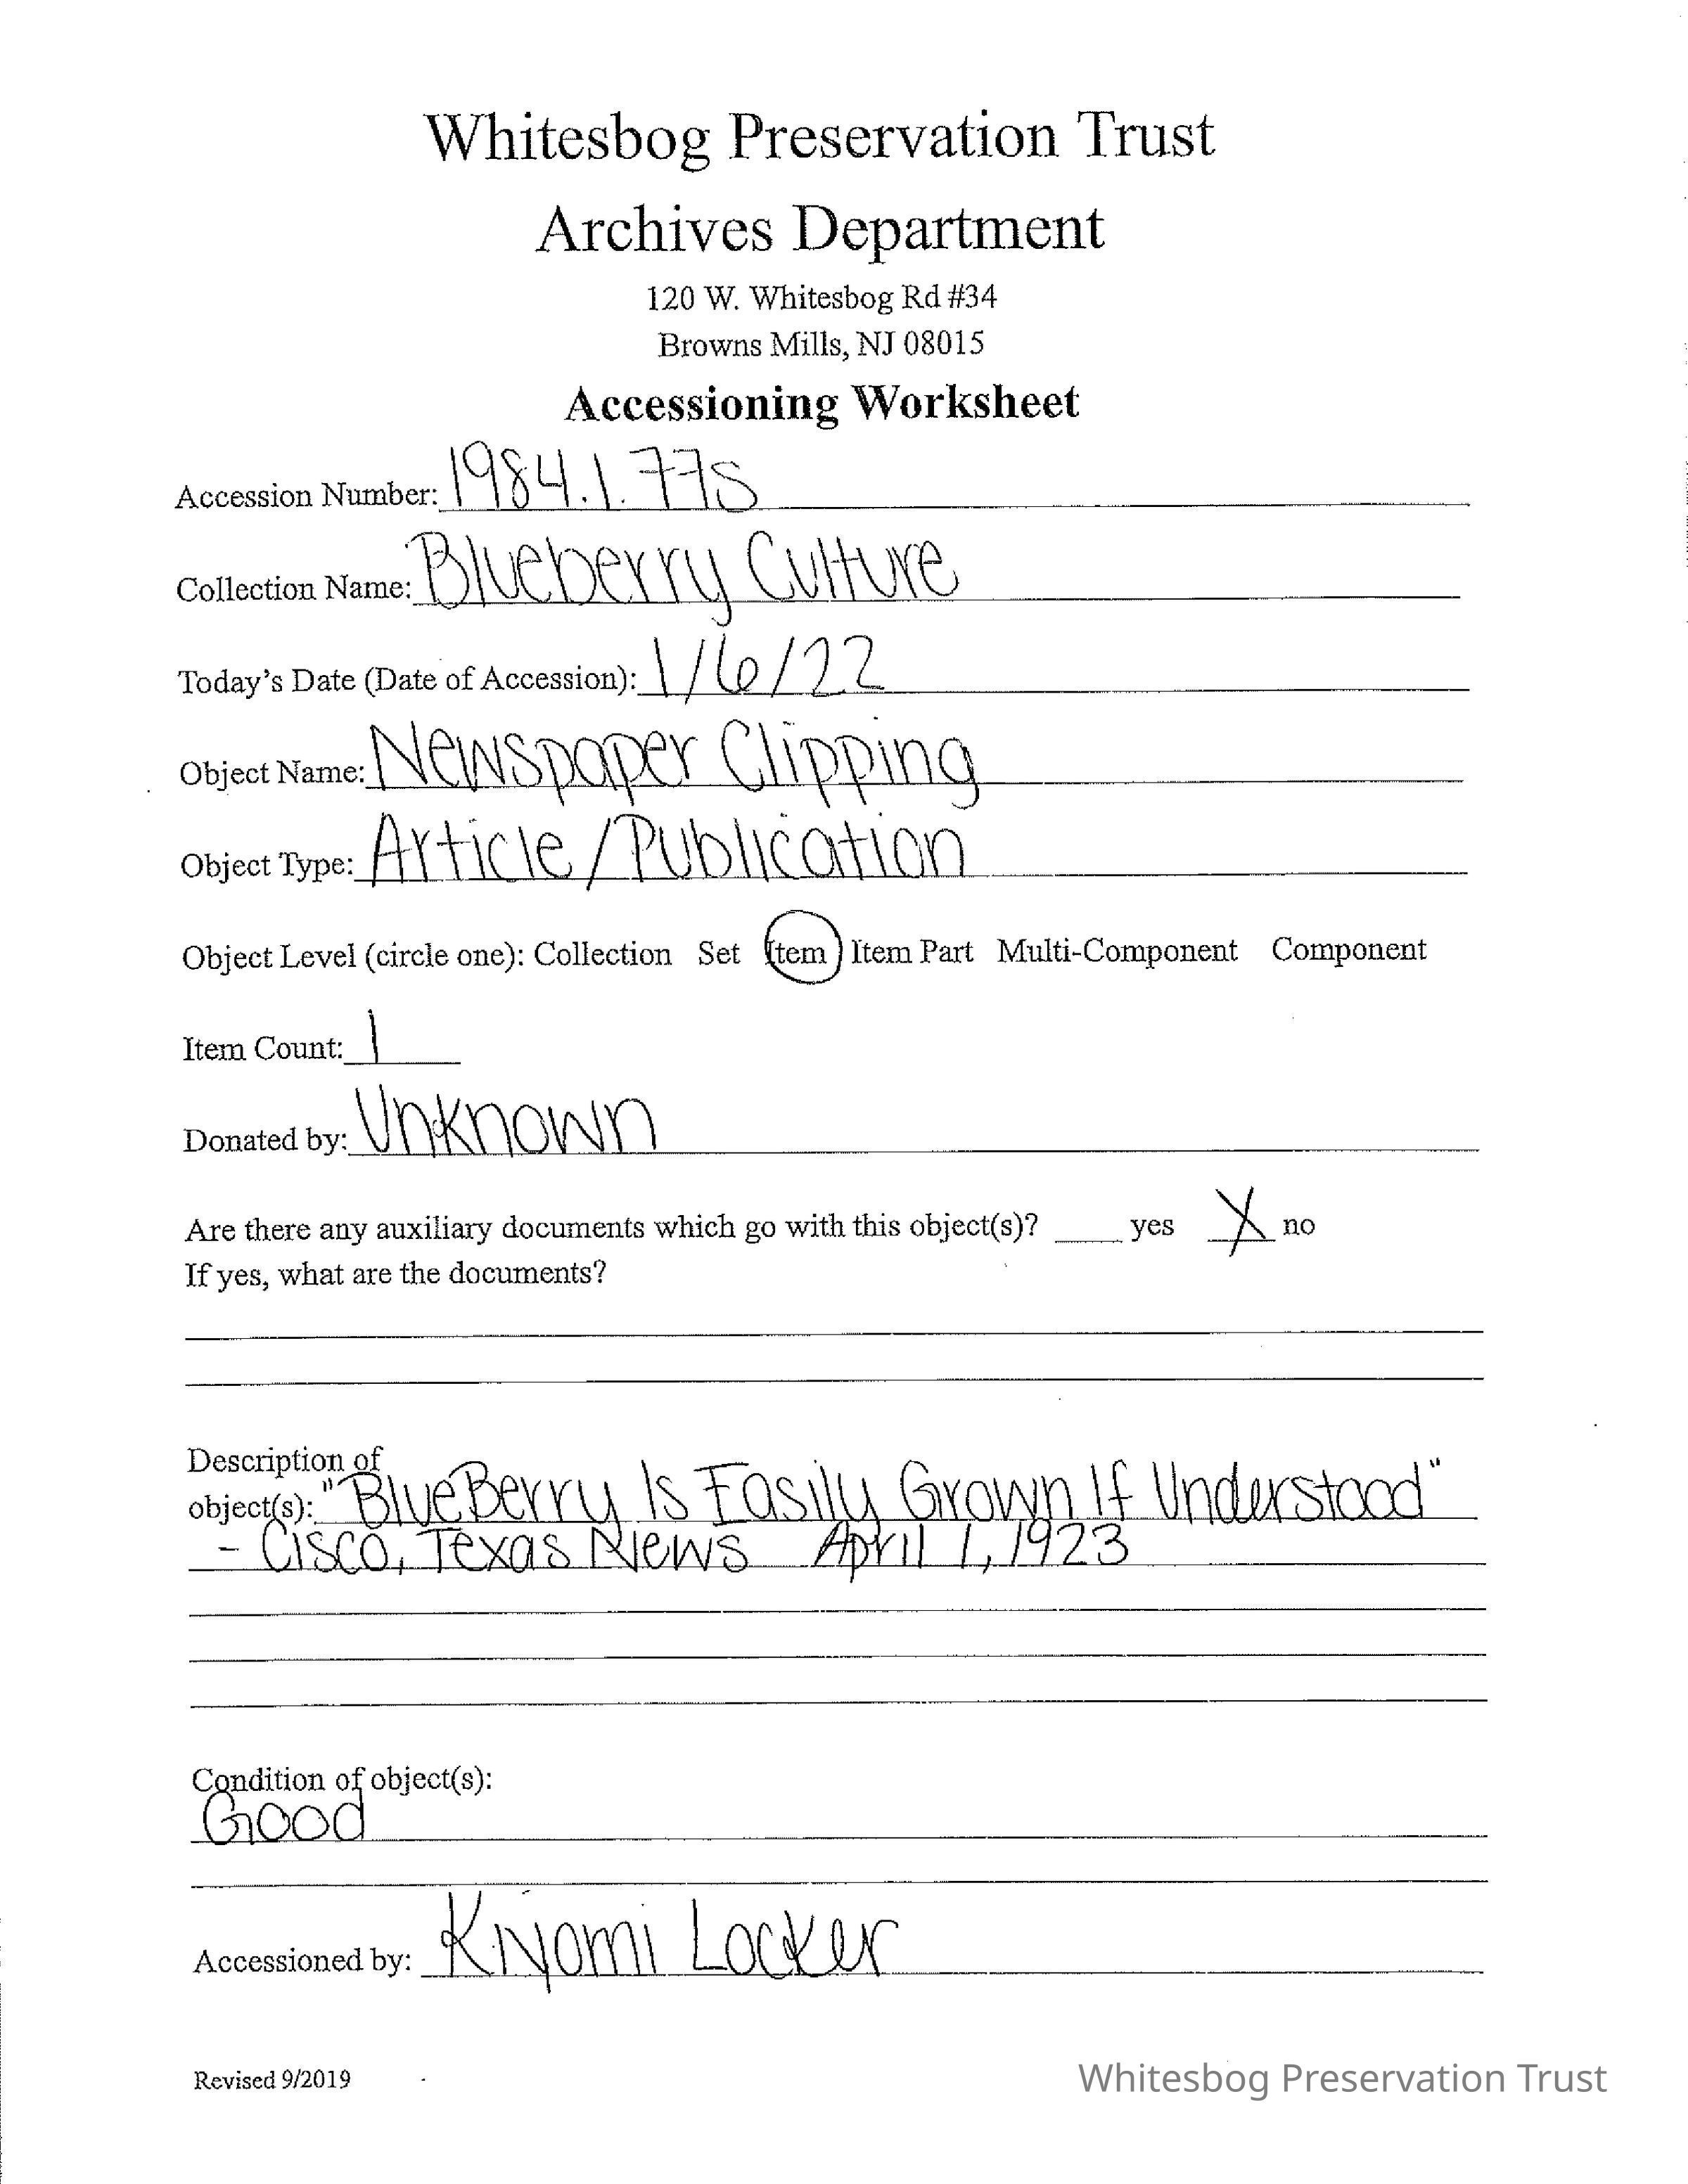 Whitesbog Preservation Trust
Archives Department
120 W. Whitesbog Rd #34
Browns Mills, NJ 08015
Accessioning Worksheet
Accession Number: 1984.1.775
Collection Name: Blueberry Culture
Today's Date (Date of Accession): 1/6/22
Object Name: Newspaper Clipping
Object Type: Article/Publication
Object Level (circle one): Collection Set Item Item Part Multi-Component Component
Item Count: 1
Donated by: Unknown
Are there any auxiliary documents which go with this object(s)? ____ yes X no
If yes, what are the documents?
Description of
object(s): "BlueBerry Is Easily Grown If Understood"
- Cisco, Texas News April 1, 1923
Condition of object(s):
Good
Accessioned by: Kiyomi Locker
Revised 9/2019
Whitesbog Preservation Trust